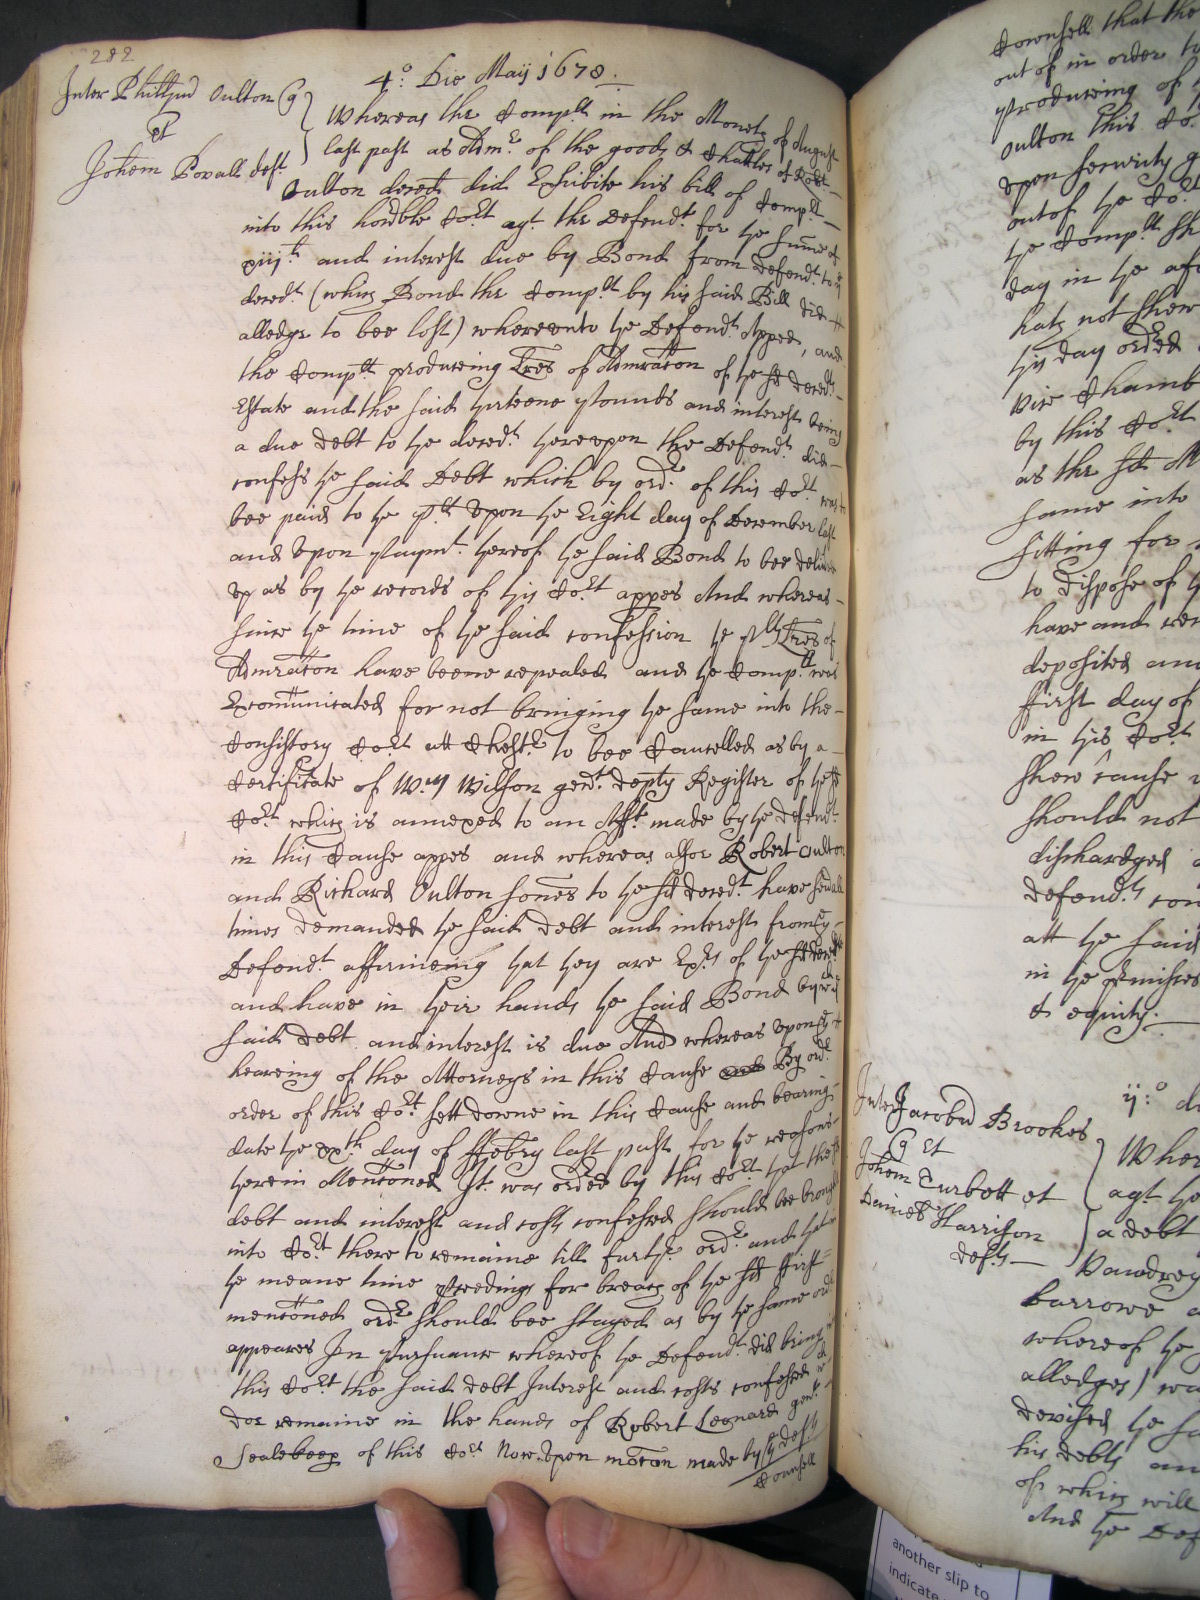 282
4.o Die Maij 1678.
Inter Phillipu Oulton q
et
Johem Povall deft.
Whereas the Complt in the Moneth of August
last past as Admr. of the goods & Chattles of Robt
Oulton deced did Exhibite his bill of Complt
into this honoble Cort agt. the Defendt. for the summe of
xiijli and interest due by Bond from Defendt. to ye
decedt. (which Bond the Complt by his said Bill did
alledge to bee lost) whereunto the Defendt. Apped, and
the Complt produceing Lres of Admraton of the sd decedt.
Estate and the said thirteene pounds and interest being
a due debt to the decedt. thereupon the Defendt. did
confess the said Debt which by ordr. of this Cort was to
bee paid to the Plt. Upon the Eight day of December last
and Upon paymt. thereof the said Bond to bee deliverd
up as by the records of this Cort appes And whereas
since the time of the said confession the Plts Lres of
Admraton have beene repealed and the Complt was
Excomunicated for not bringing the same into the
Consistory Cort att Chestr to bee Cancelled as by a
Certificate of Wm Wilson gent. depty Register of the sd
Cort which is annexed to an Afft. made by the defendt
in this Cause appes and whereas alsoe Robert Oulton
and Richard Oulton sones to the sd decedt. have sevall
times demanded the said debt and interest from ye
Defendt. affirmeing that they are Exrs of the sd decedt
and have in their hands the said Bond by wch ye
said debt and interest is due And whereas upon ye
heareing of the Attorneys in this Cause and By ordr
order of this Cort sett downe in this Cause and bearing
date the xxth day of ffebry last past for the reasons
therein Mentoned It was ordred by this Cort that the sd
debt and interest and costs confessed should bee brought
into Cort there to remaine till further ordr. and that in
the meane time pceedings for breach of the sd ffirst
mentoned ordr should bee stayed as by the same ordr
appeares In pursuance whereof the Defendt. did bring into
this Cort the said debt Interest and costs confessed wch
doe remaine in the hands of Robert Leonard gent.
Sealekeep of this Cort Now Upon moton made by ye defts
Counsell
Counsell that the
out of in order to
produceing of
Oulton this Co
upon security g
out of the Cort
the Complt sh
day in the afo
hath not shew
this day ordred
vice Chamb
by this Cort
as the sd M
same into
sitting for
to dispose of
have and rec
deposited and
ffirst day of
in this Cort
shew cause
should not
discharged
defendts con
att the said
in the pmisses
& equity.
ij.o d
Inter Jacobu Brookes
q et
Johem Turbott et
Daniel Harrison
defts
Wher
agt the
a debt
Dawdrey
barrowe a
whereof the
alledges) wa
deceised the sa
his debts an
of which will
And the Def
another slip to
indicate